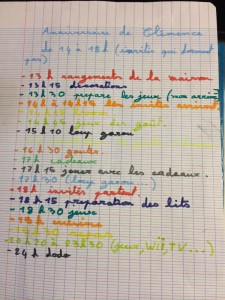 Anniversaire de Clémence
de 14 à 18h (invités qui dorment
pas)
- 13h rangements de la maison
- 13h15 décorations
- 13h30 prépare les jeux (mon
- 14h à 14h15 les invités arrivent
- 14h15
- 14h45 jeux des
- 15h10 loup garou
- 16h30 goûter
- 17h cadeaux
- 17h15 jouer avec les cadeaux.
- 17h30 (loup garou...)
- 18h invités partent.
- 18h15 préparation des lits
- 18h30 jeux
- 19h
- 19h30
- 20h20 à 23h30 (jeux, Wii, TV...)
- 24h dodo